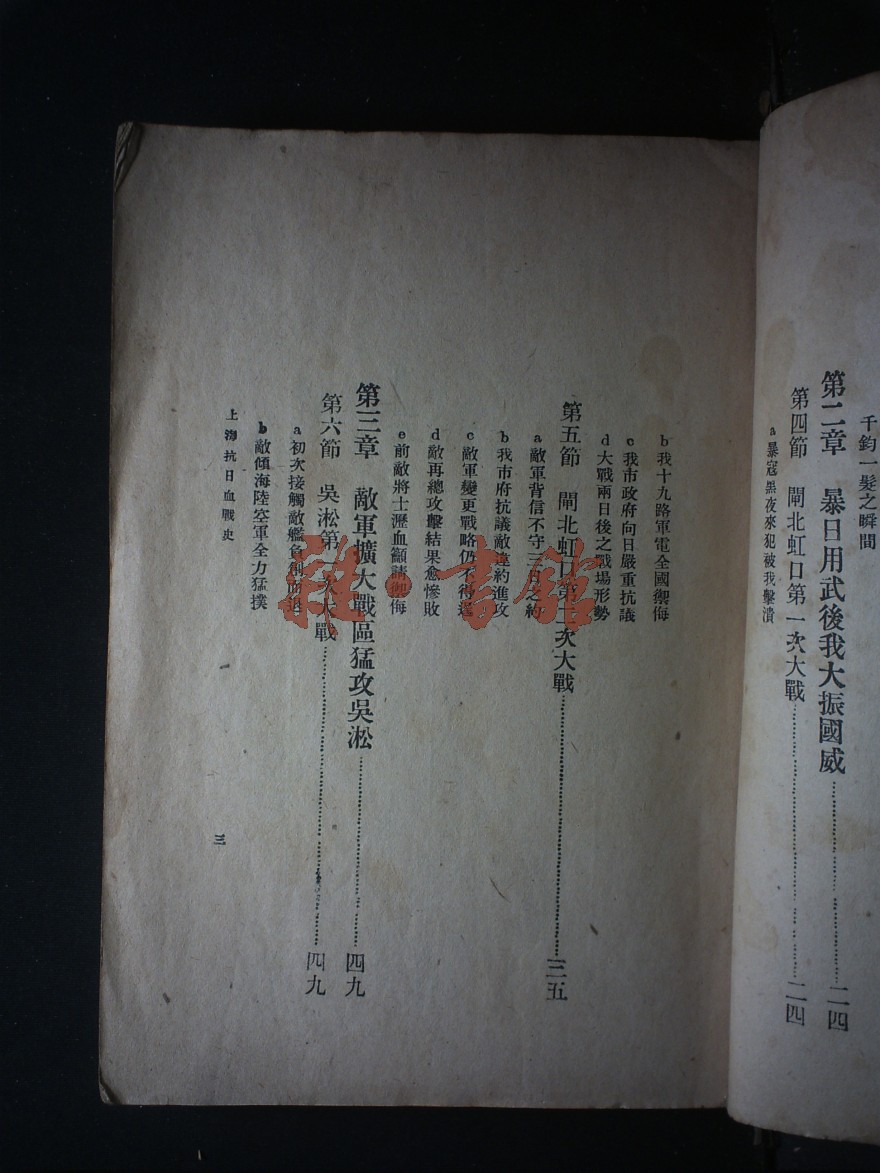 千鈞一髮之瞬間
第二章　暴日用武後我大振國威……二四
第四節　閘北虹口第一次大戰……二四
a 暴寇黑夜來犯被我擊潰
b 我十九路軍電全國禦侮
c 我市政府向日嚴重抗議
d 大戰兩日後之戰場形勢
第五節　閘北虹口第二次大戰……三五
a 敵軍背信不守三日之約
b 我市府抗議敵違約進攻
c 敵軍變更戰略仍不得逞
d 敵再總攻擊結果愈慘敗
e 前敵將士瀝血籲請禦侮
第三章　敵軍擴大戰區猛攻吳淞……四九
第六節　吳淞第一次大戰……四九
a 初次接觸敵艦負創而退
b 敵傾海陸空軍全力猛撲
上海抗日血戰史
三
雜·書館